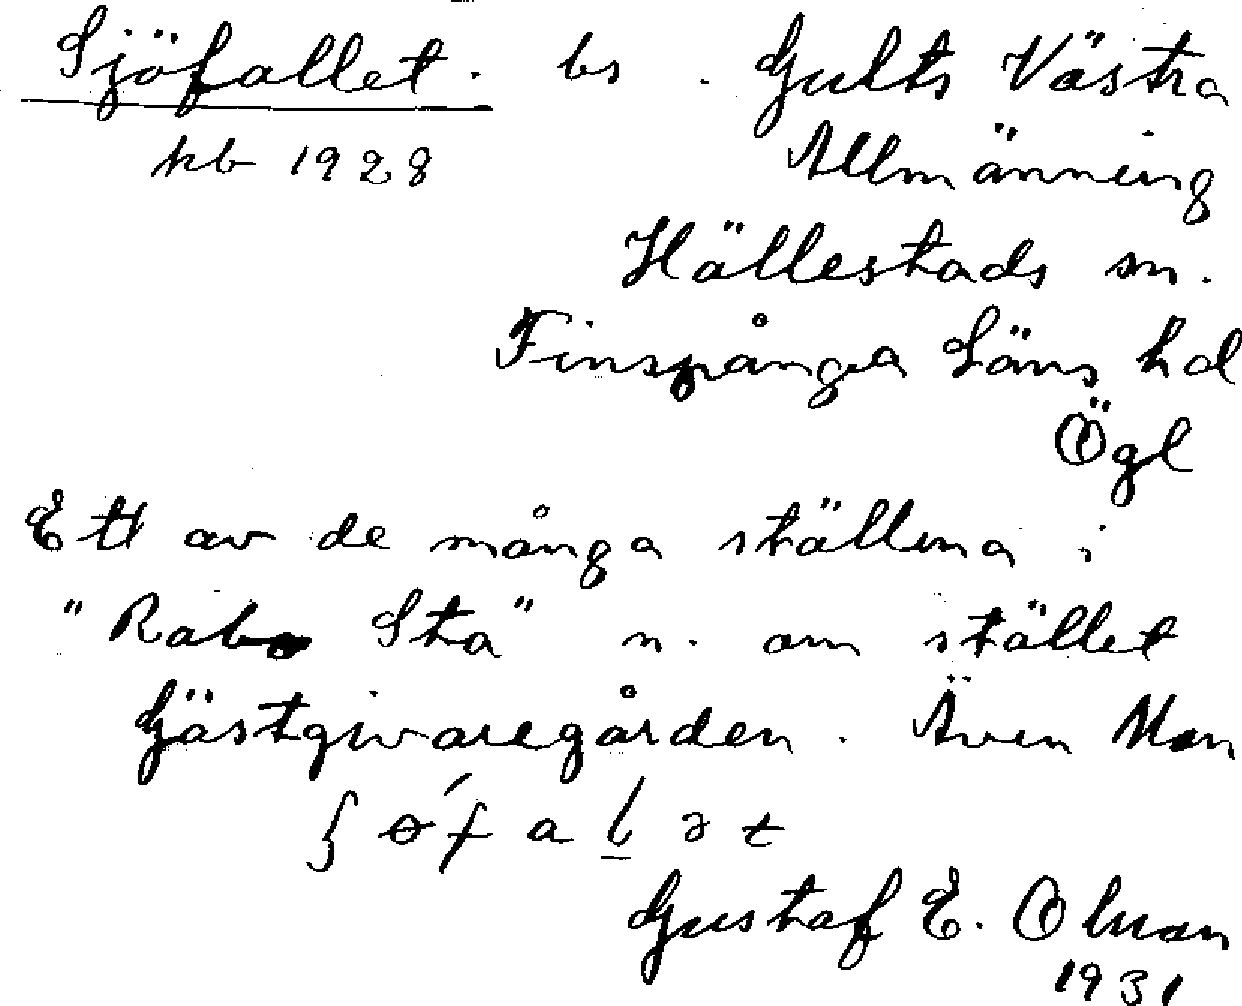 Sjöfallet. bs. Gults Västra
kb 1928 Allmänning
Hällestads sn.
Finspånga Läns hd
Ögl
Ett av de många ställena i
"Rabo Sta" n. om stället
Gästgivaregården. Även
ʃ ɵ́ f a l̲ ə t
Gustaf E. Olman
1931